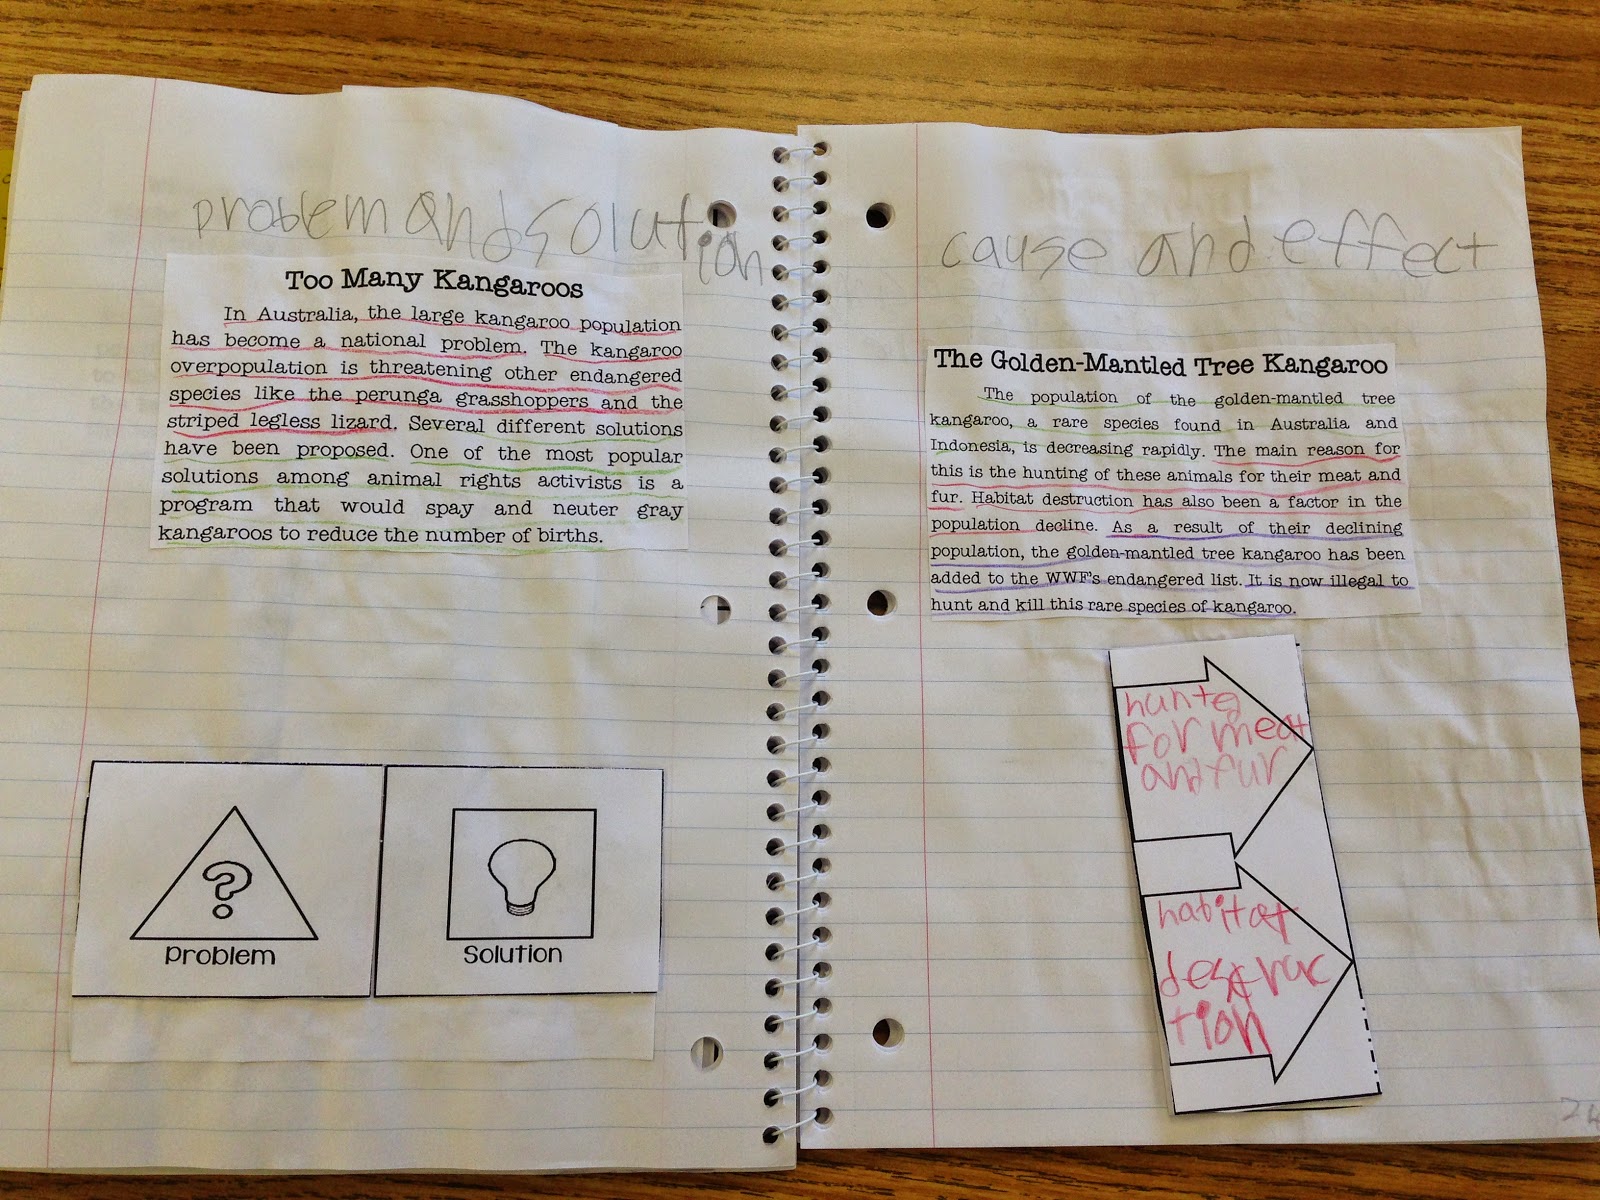 problem and solution
Too Many Kangaroos
In Australia, the large kangaroo population
has become a national problem. The kangaroo
overpopulation is threatening other endangered
species like the perunga grasshoppers and the
striped legless lizard. Several different solutions
have been proposed. One of the most popular
solutions among animal rights activists is a
program that would spay and neuter gray
kangaroos to reduce the number of births.
?
Problem
Solution
cause and effect
The Golden-Mantled Tree Kangaroo
The population of the golden-mantled tree
kangaroo, a rare species found in Australia and
Indonesia, is decreasing rapidly. The main reason for
this is the hunting of these animals for their meat and
fur. Habitat destruction has also been a factor in the
population decline. As a result of their declining
population, the golden-mantled tree kangaroo has been
added to the WWF's endangered list. It is now illegal to
hunt and kill this rare species of kangaroo.
for meat
and fur
habitat
destruc
tion